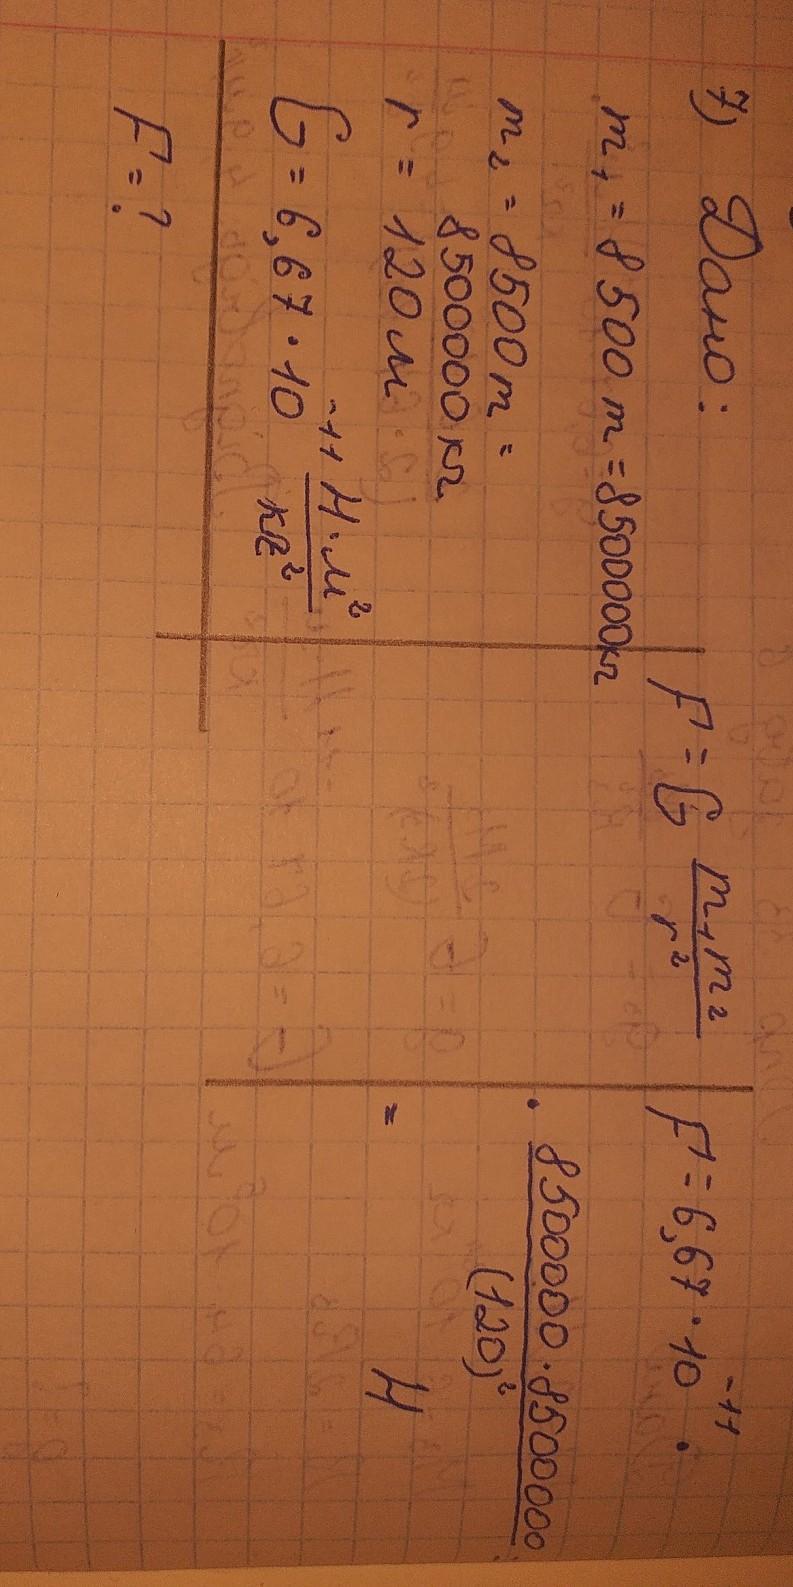 7) Дано:
m₁ = 8 500 т = 8500000 кг
m₂ = 8500 т =
8500000 кг
r = 120 м
G = 6,67 · 10⁻¹¹ Н·м²/кг²
F = ?
F = G m₁m₂/r²
F = 6,67 · 10⁻¹¹ ·
· 8500000 · 8500000/(120)²
= Н